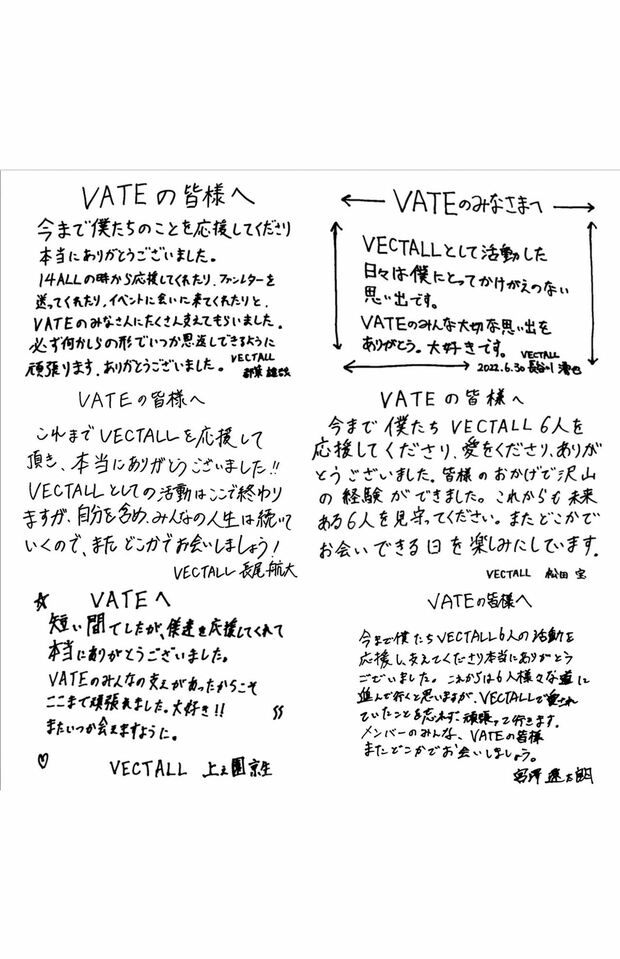 VATEの皆様へ
今まで僕たちのことを応援してくださり
本当にありがとうございました。
14ALLの時から応援してくれたり、ファンレターを
送ってくれたり、イベントに会いに来てくれたりと、
VATEのみなさんにたくさん支えてもらいました。
必ず何かしらの形でいつか恩返しできるように
頑張ります。ありがとうございました。
VECTALL
VATEのみなさまへ
VECTALLとして活動した
日々は僕にとってかけがえのない
思い出です。
VATEのみんな大切な思い出を
ありがとう。大好きです。
VECTALL
2022.6.30 長谷川
VATEの皆様へ
これまでVECTALLを応援して
頂き、本当にありがとうございました!!
VECTALLとしての活動はここで終わり
ますが、自分を含め、みんなの人生は続いて
いくので、またどこかでお会いしましょう!
VECTALL 長尾航大
VATEの皆様へ
今まで僕たちVECTALL6人を
応援してくださり、愛をくださり、ありが
とうございました。皆様のおかげで沢山
の経験ができました。これからも未来
ある6人を見守ってください。またどこかで
お会いできる日を楽しみにしています。
VECTALL 松田 宝
☆ VATEへ
短い間でしたが、僕達を応援してくれて
本当にありがとうございました。
VATEのみんなの支えがあったからこそ
ここまで頑張れました。大好き!!
またいつか会えますように。
♡ VECTALL 上之園京生
VATEの皆様へ
今まで僕たちVECTALL6人の活動を
応援し、支えてくださり本当にありがとう
ございました。これからは6人様々な道に
進んで行くと思いますが、VECTALLで愛され
ていたことを忘れず、頑張って行きます。
メンバーのみんな、VATEの皆様
またどこかでお会いしましょう。